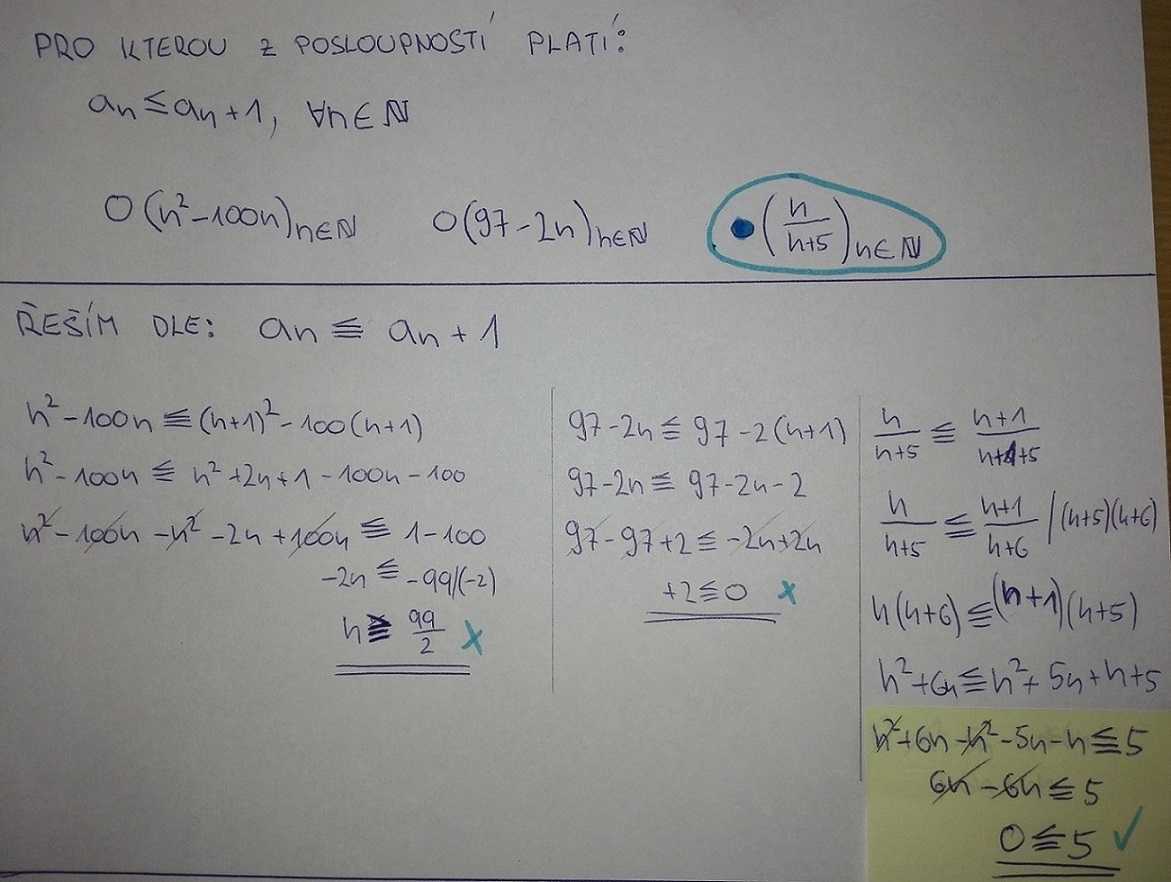 PRO KTEROU Z POSLOUPNOSTÍ PLATÍ:
an ≦ an+1, ∀n∈ℕ
O (n²-100n)n∈ℕ O (97-2n)n∈ℕ ● (n/n+5)n∈ℕ
ŘEŠÍM DLE: an ≦ an+1
n²-100n ≦ (n+1)²-100(n+1)
n²-100n ≦ n²+2n+1-100n-100
n²-100n-n²-2n+100n ≦ 1-100
-2n ≦ -99/(-2)
n ≧ 99/2 x
97-2n ≦ 97-2(n+1)
97-2n ≦ 97-2n-2
97-97+2 ≦ -2n+2n
+2 ≦ 0 x
n/n+5 ≦ n+1/n+1+5
n/n+5 ≦ n+1/n+6 /(n+5)(n+6)
n(n+6) ≦ (n+1)(n+5)
n²+6n ≦ n²+5n+n+5
n²+6n-n²-5n-n ≦ 5
6n-6n ≦ 5
0 ≦ 5 ✓